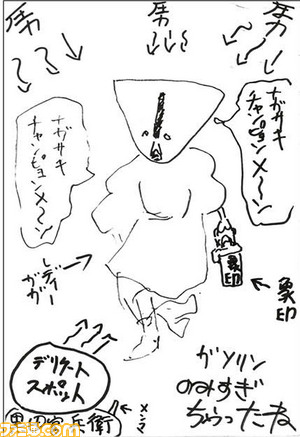 男
男
男
ナガサキ
チャンピョンメ〜ン
ナガサキ
チャンピョンメ〜ン
象印
レディー
ガガ
象印
デリケート
スポット
ガソリン
のみすぎ
ちゃったね
兵衛
ファミ通.com